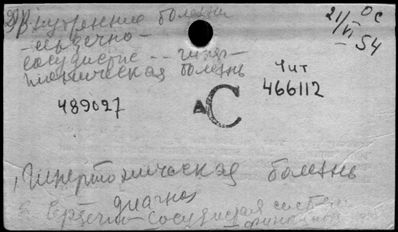 Внутренние болезни
- сердечно-
сосудистые -- гипер-
тоническая болезнь
ОС
21/VI-54
489027
АС
Чит
466112
1, Гипертоническая болезнь
диагноз
Сердечно-сосудистая система